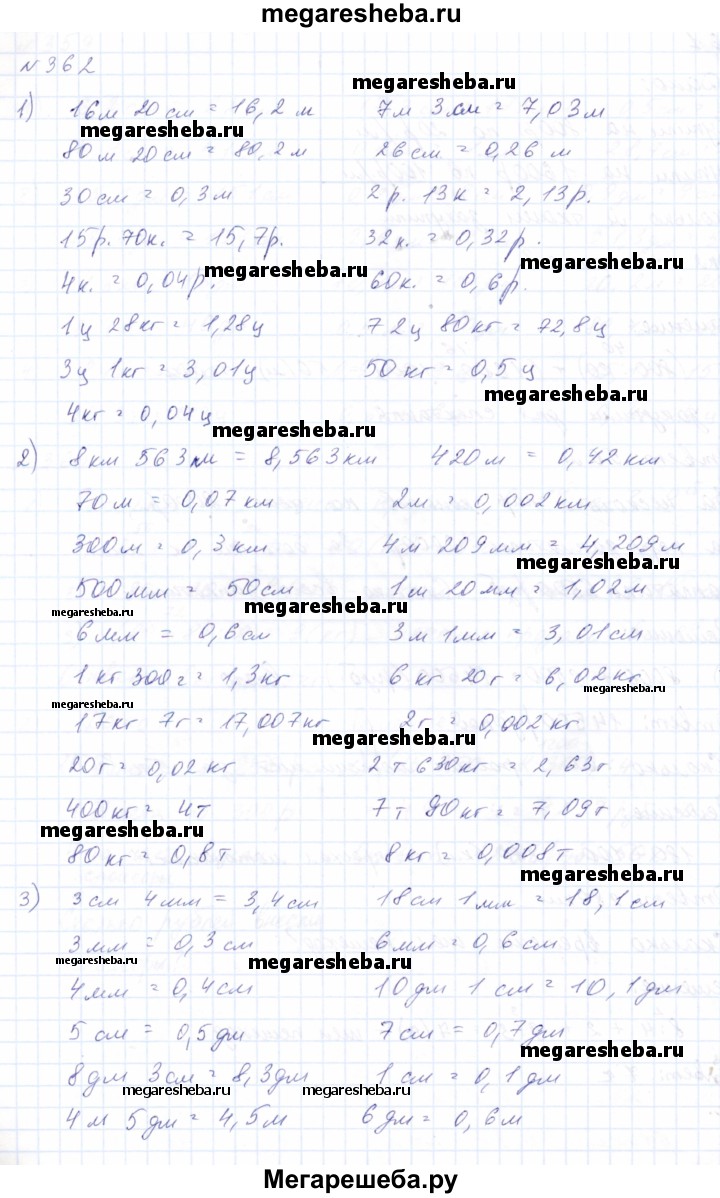 megaresheba.ru
N 362
megaresheba.ru
1) 16м 20см = 16,2 м 7м 3см = 7,03м
megaresheba.ru
80м 20см = 80,2м 26см = 0,26 м
30см = 0,3м 2р. 13к = 2,13р.
15р. 70к. = 15,7р. 32к. = 0,32р.
megaresheba.ru megaresheba.ru
4к. = 0,04р. 60к. = 0,6р.
1ц 28кг = 1,28ц 72ц 80кг = 72,8ц
3ц 1кг = 3,01ц 50кг = 0,5ц
megaresheba.ru
4кг = 0,04ц
megaresheba.ru
2) 8км 563м = 8,563км 420м = 0,42км
70м = 0,07км 2м = 0,002км
300м = 0,3км 4м 209мм = 4,209м
megaresheba.ru
500мм = 50см 1м 20мм = 1,02м
megaresheba.ru megaresheba.ru
6мм = 0,6см 3м 1мм = 3,01см
1кг 300г = 1,3кг 6кг 20г = 6,02кг
megaresheba.ru megaresheba.ru
17кг 7г = 17,007кг 2г = 0,002кг
megaresheba.ru
20г = 0,02кг 2т 630кг = 2,63т
400кг = 4т 7т 90кг = 7,09т
megaresheba.ru
80кг = 0,8т 8кг = 0,008т
3) 3см 4мм = 3,4см 18см 1мм = 18,1см
3мм = 0,3см 6мм = 0,6см
megaresheba.ru megaresheba.ru
4мм = 0,4см 10дм 1см = 10,1дм
5см = 0,5дм 7см = 0,7дм
megaresheba.ru
8дм 3см = 8,3дм 1см = 0,1дм
megaresheba.ru megaresheba.ru
4м 5дм = 4,5м 6дм = 0,6м
Мегарешеба.ру